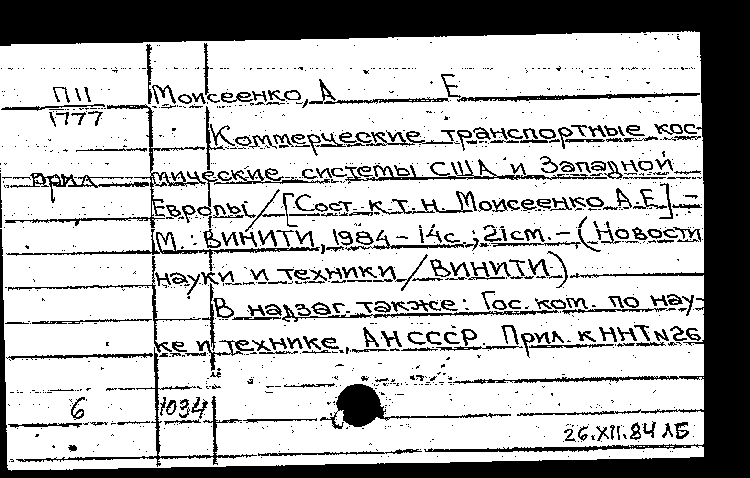 П11 Моисеенко, А Е
1777
Коммерческие транспортные кос-
прил мические системы США и Западной
Европы / [Сост. к.т.н. Моисеенко А.Е.] -
М.: ВИНИТИ, 1984 - 14с.; 21см. - (Новости
науки и техники / ВИНИТИ)
В надзаг. также: Гос. ком. по нау-
ке и технике, АН СССР. Прил. к ННТ №26
6 1034
26.XII.84 ЛБ